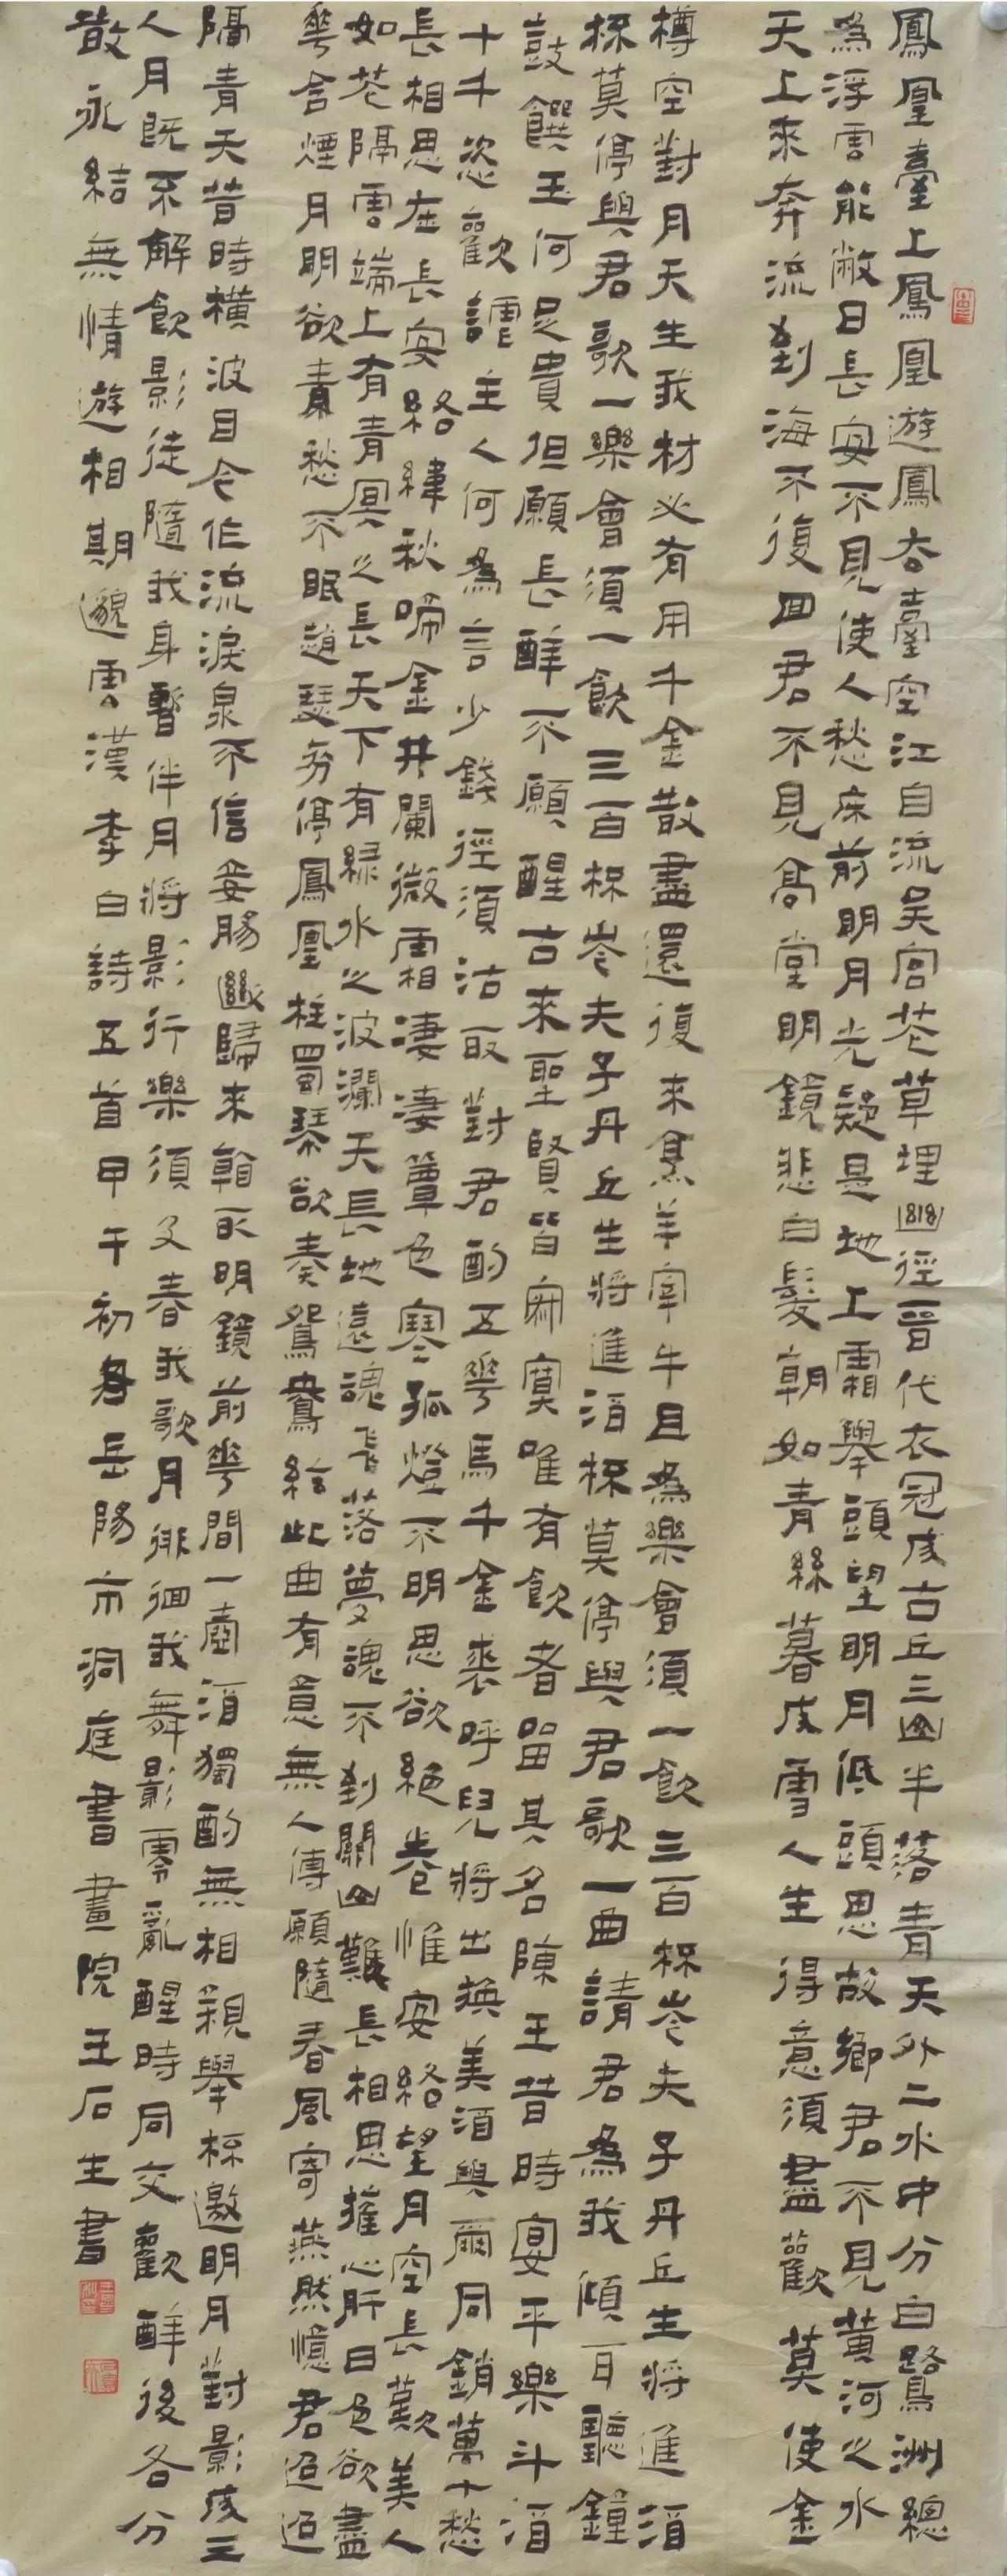 鳳凰臺上鳳凰遊鳳去臺空江自流吴宮花草埋幽徑晉代衣冠成古丘三山半落青天外二水中分白鷺洲總
為浮雲能蔽日長安不見使人愁床前明月光疑是地上霜舉頭望明月低頭思故鄉君不見黃河之水
天上來奔流到海不復回君不見高堂明鏡悲白髮朝如青絲暮成雪人生得意須盡歡莫使金
樽空對月天生我材必有用千金散盡還復來烹羊宰牛且為樂會須一飲三百杯岑夫子丹丘生將進酒
杯莫停與君歌一樂會須一飲三百杯岑夫子丹丘生將進酒杯莫停與君歌一曲請君為我傾耳聽鐘
鼓饌玉何足貴但願長醉不願醒古來聖賢皆寂寞唯有飲者留其名陳王昔時宴平樂斗酒
十千恣歡謔主人何為言少錢徑須沽取對君酌五花馬千金裘呼兒將出換美酒與爾同銷萬古愁
長相思在長安絡緯秋啼金井闌微霜凄凄簟色寒孤燈不明思欲絕卷惟安絡望月空長歎美人
如花隔雲端上有青冥之長天下有綠水之波瀾天長地遠魂飛落夢魂不到關山難長相思摧心肝日色欲盡
花含煙月明欲素愁不眠趙瑟初停鳳凰柱蜀琴欲奏鴛鴦絃此曲有意無人傳願隨春風寄燕然憶君迢迢
隔青天昔時橫波目今作流淚泉不信妾腸斷歸來看取明鏡前花間一壺酒獨酌無相親舉杯邀明月對影成三
人月既不解飲影徒隨我身暫伴月將影行樂須及春我歌月徘徊我舞影零亂醒時同交歡醉後各分
散永結無情遊相期邈雲漢李白詩五首甲午初春岳陽市洞庭書畫院王石生書